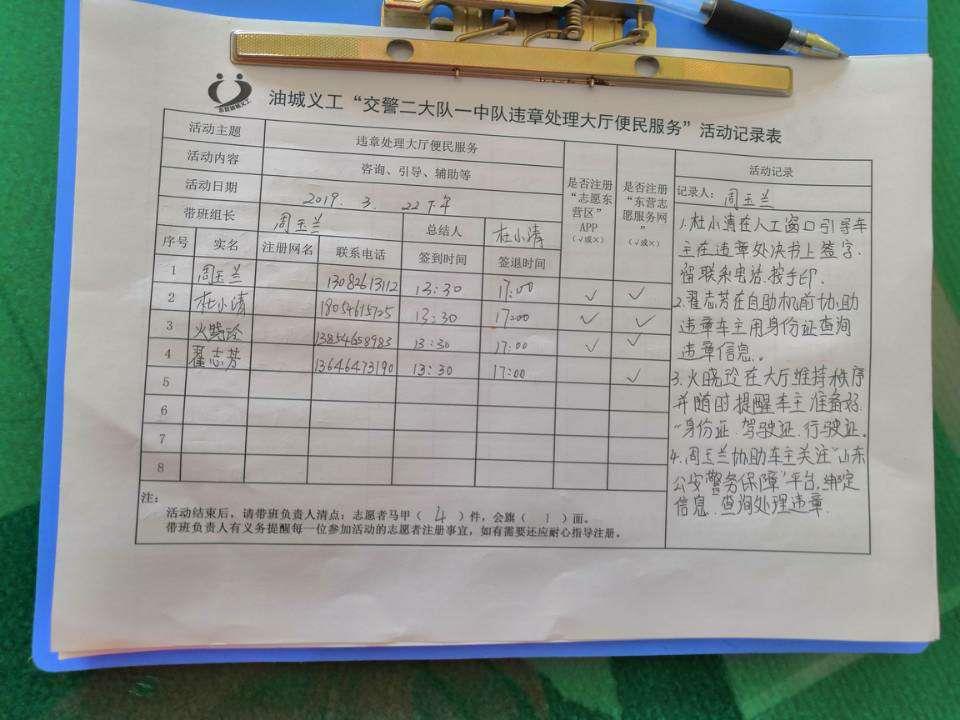 油城义工“交警二大队一中队违章处理大厅便民服务”活动记录表
活动主题 违章处理大厅便民服务
活动内容 咨询、引导、辅助等
活动日期 2019. 3. 22下午
带班组长 周玉兰 总结人 杜小清
序号 实名 注册网名 联系电话 签到时间 签退时间
是否注册
“志愿东
营区”
APP
(√或×)
是否注册
“东营志
愿服务网
”
(√或×)
1 周玉兰 13082613112 13:30 17:00 ✓ ✓
2 杜小清 18054615725 13:30 17:00 ✓ ✓
3 火晓玲 13854658983 13:30 17:00 ✓ ✓
4 翟志芳 13646473190 13:30 17:00 ✓
5
6
7
8
注:
活动结束后,请带班负责人清点:志愿者马甲( 4 )件,会旗( 1 )面。
带班负责人有义务提醒每一位参加活动的志愿者注册事宜,如有需要还应耐心指导注册。
活动记录
记录人: 周玉兰
1.杜小清在人工窗口引导车
主在违章处决书上签字.
留联系电话.按手印.
2.翟志芳在自助机前协助
违章车主用身份证查询
违章信息。
3.火晓玲在大厅维持秩序
并随时提醒车主准备好.
身份证.驾驶证.行驶证。
4.周玉兰协助车主关注“山东
公安警务保障”平台,绑定
信息.查询处理违章.